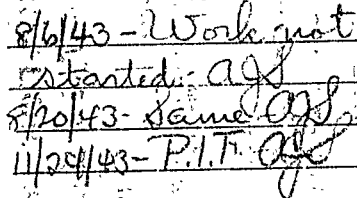 8/6/43 - Work not
started - AJS
8/20/43 - Same AJS
11/29/43 - P.I.F. AJS